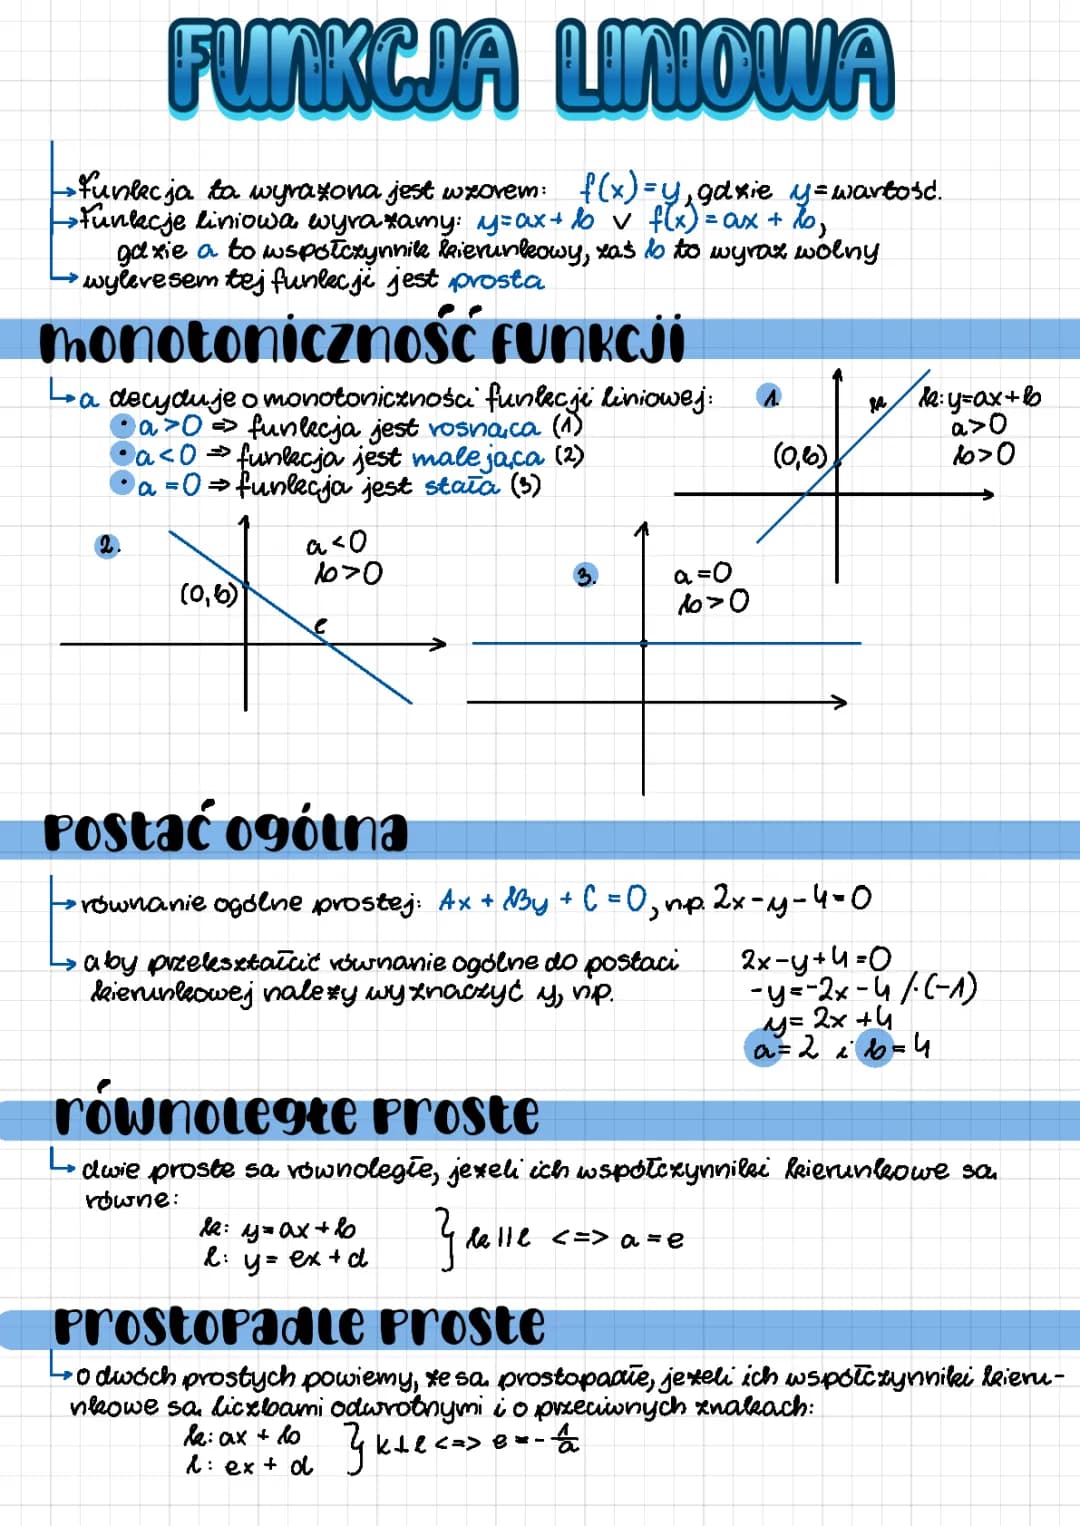 FUNKCJA LINIOWA
funkcja ta wyrażona jest wzorem: f(x)=y, gdzie y=wartość.
funkcje liniową wyrażamy: y=ax+b v f(x)=ax+b,
gdzie a to współczynnik kierunkowy, zaś b to wyraz wolny
wykresem tej funkcji jest prosta
monotoniczność funkcji
a decyduje o monotoniczności funkcji liniowej:
• a>0 ⇒ funkcja jest rosnąca (1)
• a<0 ⇒ funkcja jest malejąca (2)
• a=0 ⇒ funkcja jest stała (3)
1.
k
k: y=ax+b
a>0
b>0
(0,b)
2.
a<0
b>0
(0,b)
l
3.
a=0
b>0
postać ogólna
równanie ogólne prostej: Ax + By + C = 0, np. 2x-y-4=0
aby przekształcić równanie ogólne do postaci
kierunkowej należy wyznaczyć y, np.
2x-y+4=0
-y=-2x-4 /·(-1)
y= 2x +4
a=2 i b=4
równoległe proste
dwie proste są równoległe, jeżeli ich współczynniki kierunkowe są
równe:
k: y=ax+b
l: y= ex+d
} k||l <=> a=e
prostopadłe proste
o dwóch prostych powiemy, że są prostopadłe, jeżeli ich współczynniki kieru-
nkowe są liczbami odwrotnymi i o przeciwnych znakach:
k: ax + b
l: ex + d
} k⊥l <=> e = -1/a